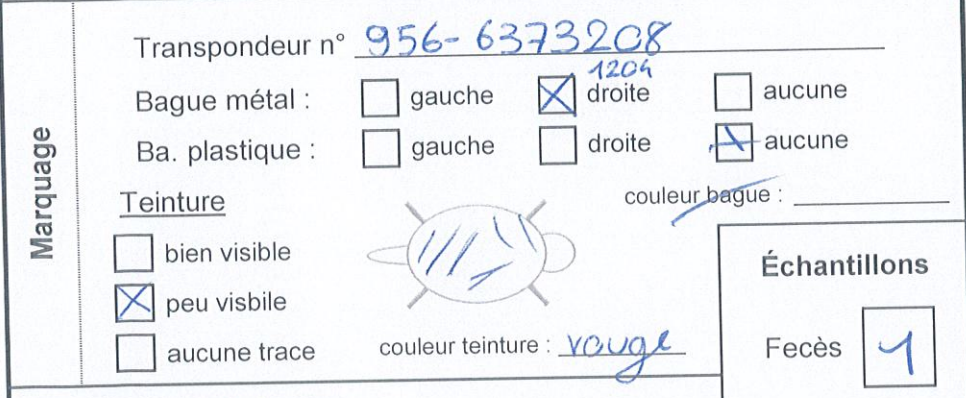 Marquage
Transpondeur n° 956-6373208
1204
Bague métal : gauche droite aucune
Ba. plastique : gauche droite aucune
Teinture couleur bague :
bien visible
peu visbile
aucune trace
couleur teinture : rouge
Échantillons
Fecès 1